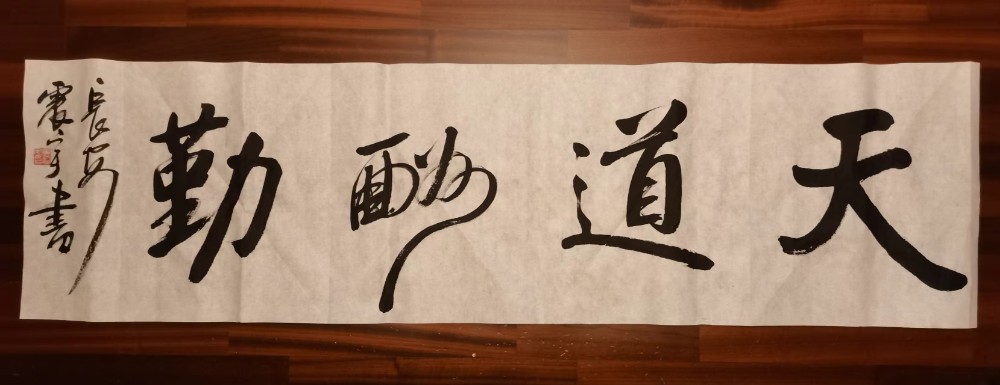 天道酬勤
長安
震宇書